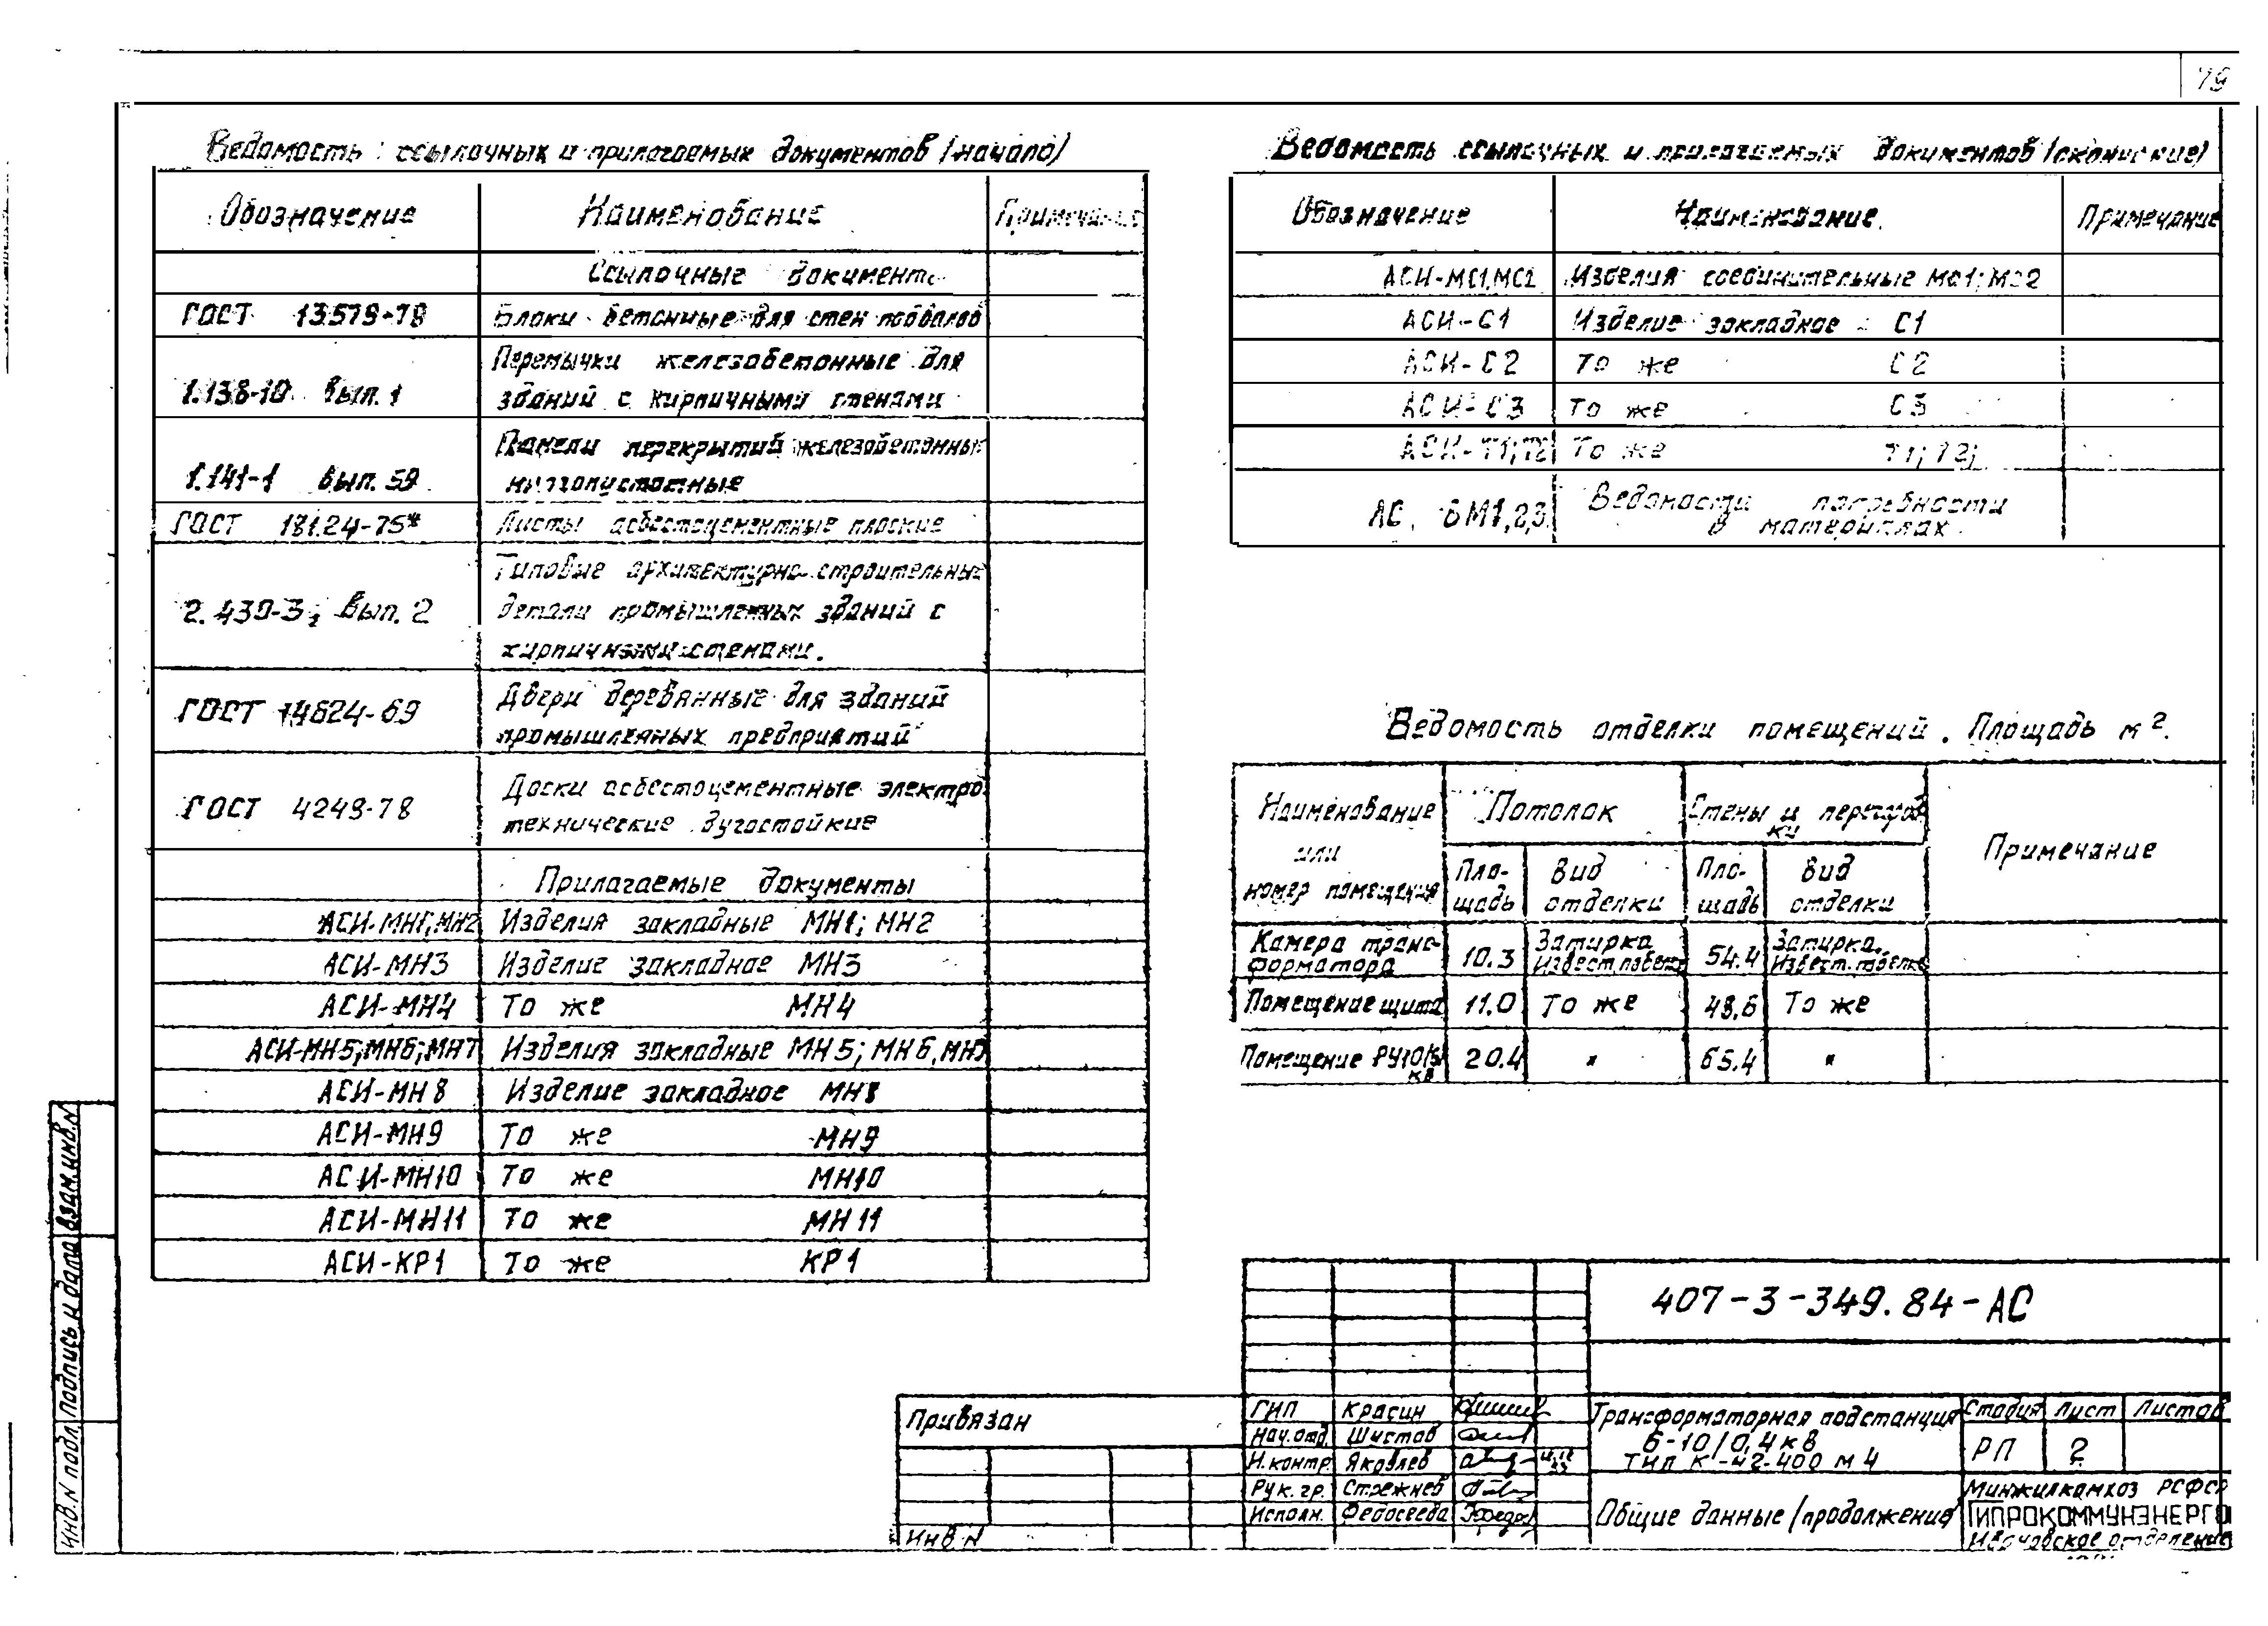 79
Ведомость ссылочных и прилагаемых документов (начало)
Обозначение Наименование Примечание
Ссылочные документы
ГОСТ 13579-78 Блоки бетонные для стен подвалов
1.138-10 Вып. 1 Перемычки железобетонные для
зданий с кирпичными стенами
1.141-1 Вып. 59 Панели перекрытий железобетонные
многопустотные
ГОСТ 18124-75* Листы асбестоцементные плоские
2.430-3, Вып. 2 Типовые архитектурно-строительные
детали промышленных зданий с
кирпичными стенами.
ГОСТ 14624-69 Двери деревянные для зданий
промышленных предприятий
ГОСТ 4248-78 Доски асбестоцементные электро
технические дугостойкие
Прилагаемые документы
АСИ-МН1;МН2 Изделия закладные МН1; МН2
АСИ-МН3 Изделие закладное МН3
АСИ-МН4 То же МН4
АСИ-МН5;МН6;МН7 Изделия закладные МН5; МН6, МН7
АСИ-МН8 Изделие закладное МН8
АСИ-МН9 То же МН9
АСИ-МН10 То же МН10
АСИ-МН11 То же МН11
АСИ-КР1 То же КР1
Ведомость ссылочных и прилагаемых документов (окончание)
Обозначение Наименование Примечание
АСИ-МС1,МС2 Изделия соединительные МС1; МС2
АСИ-С1 Изделие закладное С1
АСИ-С2 То же С2
АСИ-С3 То же С3
АСИ-Т1;Т2 То же Т1; Т2;
АС. ВМ1,2,3 Ведомости потребности
в материалах
Ведомость отделки помещений. Площадь м².
Наименование
или
номер помещения
Потолок
Стены и перегород
ки
Примечание
Пло-
щадь
Вид
отделки
Пло-
щадь
Вид
отделки
Камера транс-
форматора 10.3 Затирка Извест. побелка 54.4 Затирка. Извест. побелка
Помещение щита 11.0 То же 48.6 То же
Помещение РУ10(6) кВ 20.4 " 65.4 "
407-3-349.84-АС
Привязан
Инв N
ГИП Красин
Нач. отд. Шустов
Н. контр. Яковлев
Рук. гр. Стрежнев
Исполн. Федосеева
Трансформаторная подстанция
6-10/0,4 кв
тип К-42-400 м4
Стадия Лист Листов
РП 2
Общие данные (продолжение)
Минжилкомхоз РСФСР
ГИПРОКОММУНЭНЕРГО
Ивановское отделение
Инв. N подл. Подпись и дата Взам. инв. N